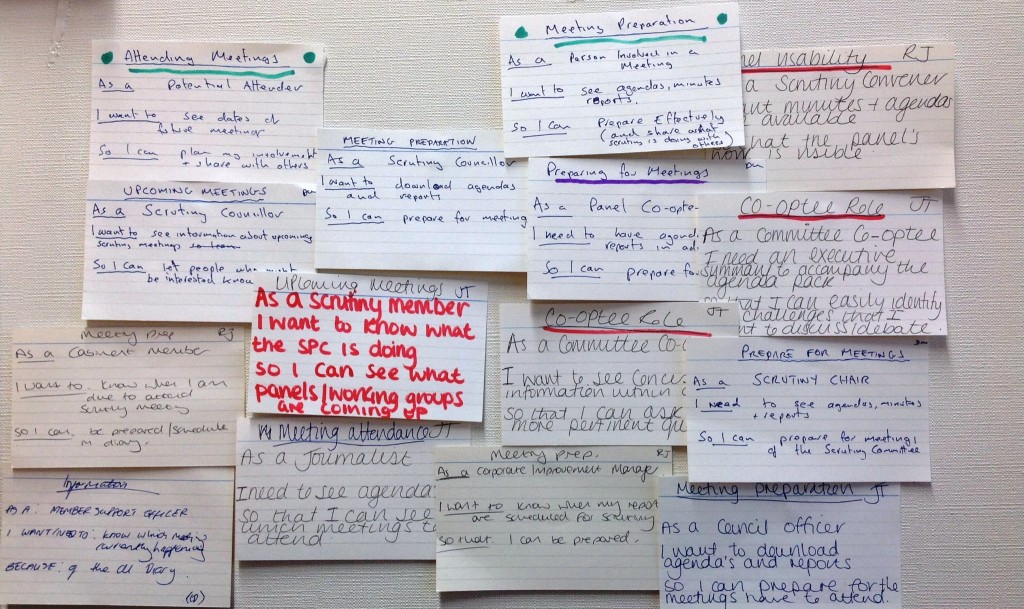 Attending Meetings
As a Potential Attender
I want to see dates of
future meetings
So I can plan my involvement
+ share with others
UPCOMING MEETINGS
As a Scrutiny Councillor
I want to see information about upcoming
scrutiny meetings
So I can let people who might
be interested know
Meeting prep RJ
As a Cabinet member
I want to know when I am
due to attend
scrutiny meeting
So I can be prepared/schedule
in diary.
Information
AS A: MEMBER SUPPORT OFFICER
I WANT/NEED TO: know which
currently happening
BECAUSE: of the Diary.
MEETING PREPARATION
As a Scrutiny Councillor
I want to download agendas
and reports
So I can prepare for meeting
Upcoming Meetings JT
As a scrutiny member
I want to know what
the SPC is doing
so I can see what
panels/working groups
are coming up
Meeting attendance JT
As a Journalist
I need to see agenda
so that I can see
which meetings to
attend
Meeting Preparation
As a Person Involved in a
Meeting
I want to see agendas, minutes
reports.
So I Can Prepare Effectively
(and share what
scrutiny is doing with
others)
Preparing for Meetings
As a Panel Co-opte
I need to have agend
reports in ad
So I can prepare fo
Co-optee Role JT
As a Committee Co-
I want to see conci
information within
so that I can ask
more pertinent que
Meeting prep. RJ
As a Corporate Improvement Manage
I want to know when my report
are scheduled for scrutiny
So that I can be prepared.
nel Usability RJ
a Scrutiny Convener
ant minutes + agendas
available
hat the panel's
work is visible
Co-optee Role JT
As a Committee Co-optee
I need an executive
summary to accompany the
agenda pack
so that I can easily identify
challenges that I
nt to discuss/debate.
PREPARE FOR MEETINGS
As a SCRUTINY CHAIR
I need to see agendas, minutes
+ reports
So I can prepare for meetings
of the Scrutiny Committee
Meeting preparation JT
As a Council officer
I want to download
agenda's and reports
So I can prepare for the
meetings have to attend.